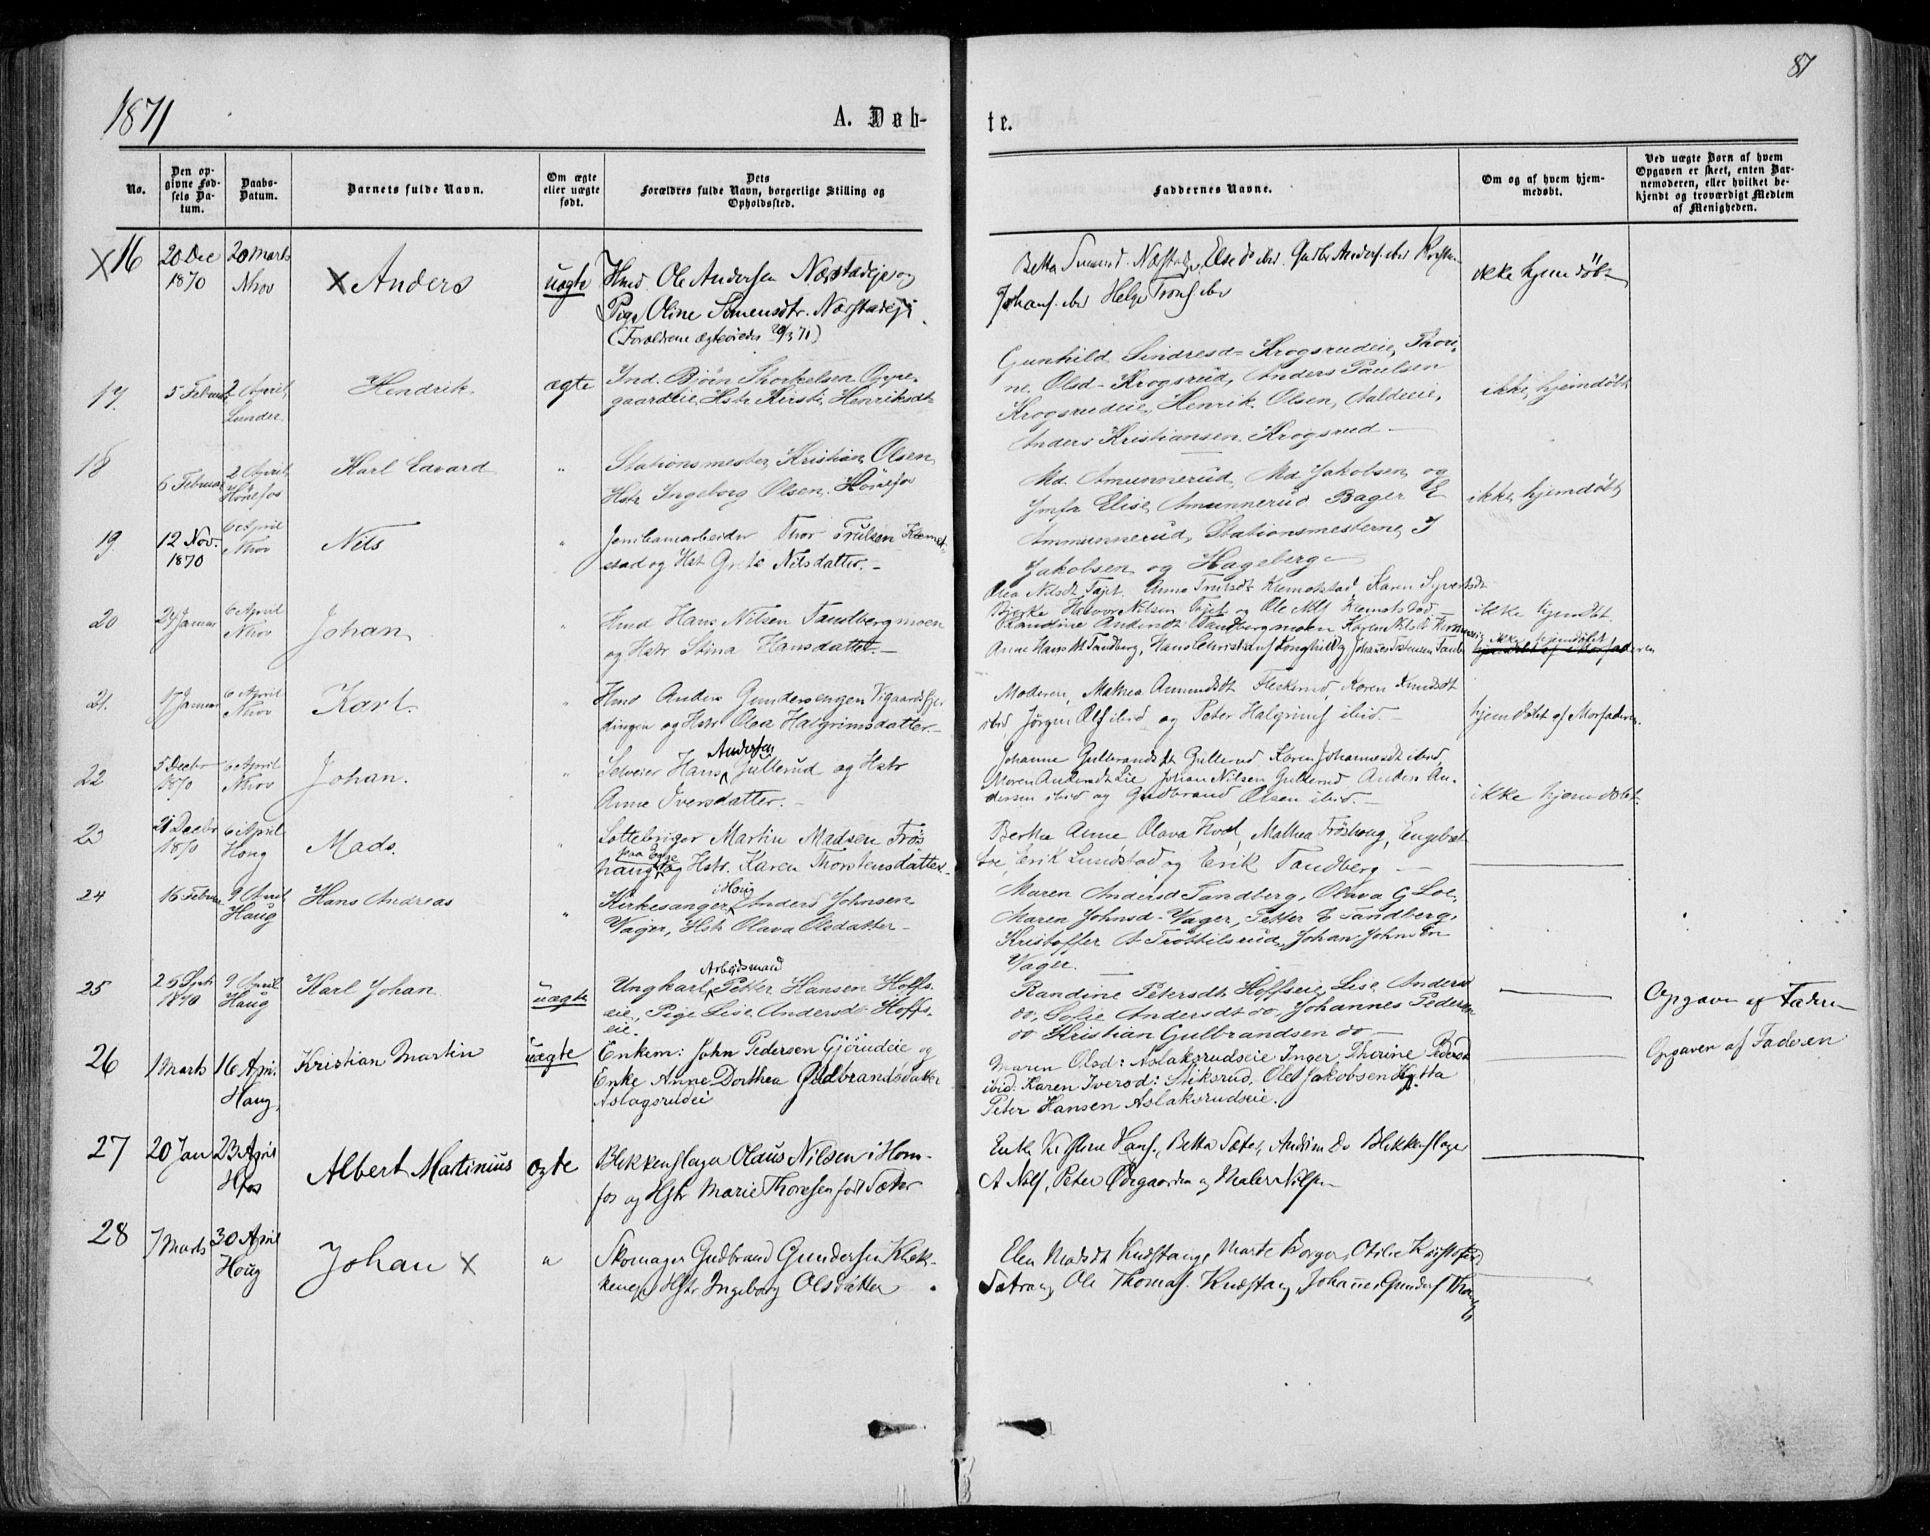 87
1871
A. Døb-
te.
No.
Den op-
givne Fød-
sels Da-
tum.
Daabs-
Datum.
Barnets fulde Navn.
Om ægte
eller uægte
født.
Dets
Forældres fulde Navn, borgerlige Stilling og
Opholdssted.
Faddernes Navne.
Om og af hvem hjem-
medøbt.
Ved uægte Børn af hvem
Opgaven er skeet, enten Bar-
nemoderen, eller hvilket be-
kjendt og troværdigt Medlem
af Menigheden.
16
20 Dec
1870
20 Marts
Nhov
Anders
uægte
Hmd. Ole Andersen Næsstadeje og
Pige Oline Simensdtr. Næsstadeje
(Forældrene ægteviedes 20/3 71)
Johans. ibd Helge Trons. ibd
ikke hjemdøbt
17.
5 Februar
2 April
Lunder
Hendrik
ægte
Ind. Bjørn Thorkelsen Oppe-
gaardeie, Hstr Kirsti Henriksdt
Gunhild Sindresd- Krogsrudeie, Thori-
ne Olsd- Krogsrud, Anders Paulsen
Krogsrudeie, Henrik Olsen,
Anders Kristiansen Krogsrud -
ikke hjemdøbt
18
6 Februar
2 April
Hønefos
Karl Edvard
"
Stationsmester Kristian Olsen
Hstr Ingeborg Olsen. Hønefos
Md. Amunnerud, Md Jakobsen og
Jmfr Elise Amunnerud Bager E
Ammunnerud, Stationsmesterne J
Jakobsen og Hageberg -
ikke hjemdøbt
19
12 Nov.
1870
6 April
Nhov
Nils
"
Jernbanarbeider Thor Trulsen Klemet-
stad og Hst Grete Nilsdatter. -
Olea Nilsdt Fajet. Anne Trulsdt Klemetstad, Karen Syvertsdt
Bjerke Halvor Nilsen Fajet og Ole Nils. Klemetstad. -
ikke hjemdøbt.
20
24 Januar
6 April
Nhov
Johan
"
Hmd Hans Nilsen Tandbergmoen
og Hstr Stina Hansdatter. -
Randine Andersdt Tandbergmoen Karen
Anne Hans M Tandberg, Hans Christians.
ikke hjemdøbt
hjemdøbt af Morfaderen
21.
17 Januar
6 April
Nhov
Karl.
"
Hmd Anders Gundersengen
dingen og Hstr Olea Halgrimsdatter. -
Moderen, Mathea Amundsdt Fleskerud, Karen Knudsdt
ibid, Jørgen Ols. ibid og Peter Halgrims. ibid. -
hjemdøbt af Morfaderen.
22
5 Decbr
1870
6 April
Nhov
Johan.
"
Andersen
Selveier Hans Gullerud og Hstr
Anne Iversdatter. -
Johanne Gulbrandsdt Gullerud, Karen Johannesdt ibid,
Maren Andersdt Lie Johan Nilsen Gullerud Anders An-
dersen ibid og Gudbrand Olsen ibid. -
ikke hjemdøbt.
23
21 Decbr
1870
6 April
Houg
Mads.
"
Martin Madsen Frøs
haug og Hstr. Karen Thorstensdatter.
Berthe Anne Olava Hval, Mathea Frøshoug, Engebret
Erik Lundstad og Erik Tandberg -
24
16 Februar
9 April
Haug
Hans Andreas
"
i Houg
Kirkesanger Anders Johnsen
Vager, Hstr Olava Olsdatter -
Maren Andersd Tandberg, Olava G Loe,
Maren Johnsd- Vager, Petter E Tandberg,
Kristoffer A Trøttilsrud, Johan Johnsen
Vager.
25
1870
9 April
Haug
Karl Johan
uægte
Arbeidsmand
Ungkarl Petter Hansen Hoffs-
eie, Pige Lise Andersdt Hoffs-
eie.
Randine Petersdt Hoffseie, Lise Andersd
do, Sofie Andersdt do, Johannes Pedersen
do Kristian Gulbrandsen do -
Opgaven af Faderen
26
1 Marts
16 Apr.
Haug,
Kristian Martin
uægte
Enkem: John Pedersen Gjørudeie og
Enke Anne Dorthea Guldbrandsdatter
Aslagsrudei
Maren Olsd: Aslaksrudseie Inger, Therine Pedersd
ibid: Karen Iversd: Stiksrud, Ole Jakobsen Hytta
Peter Hansen Aslaksrudseie.
Opgaven af Faderen
27
20 Jan
23 April
Hfos
Albert Martinius
ægte
Blikkenslager Olaus Nilsen i Høne-
fos og Hstr Marie Thoresen født Sæther
A Nils., Peter Ødegaarden og Maler Nilsen
28
7 Marts
30 April
Houg
Johan
"
Skomager Gudbrand Gundersen Klæk-
kene, Hstr Ingeborg Olsdatter
Elen Madsdt Knestang, Marte Borger, Otilie Kristofersd
Sætrang, Ole Thomas. Knestang, Johannes Gunders.